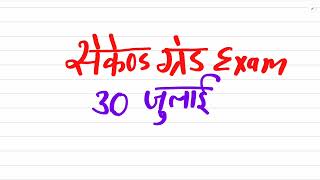 सेकेण्ड ग्रेड Exam
30 जुलाई